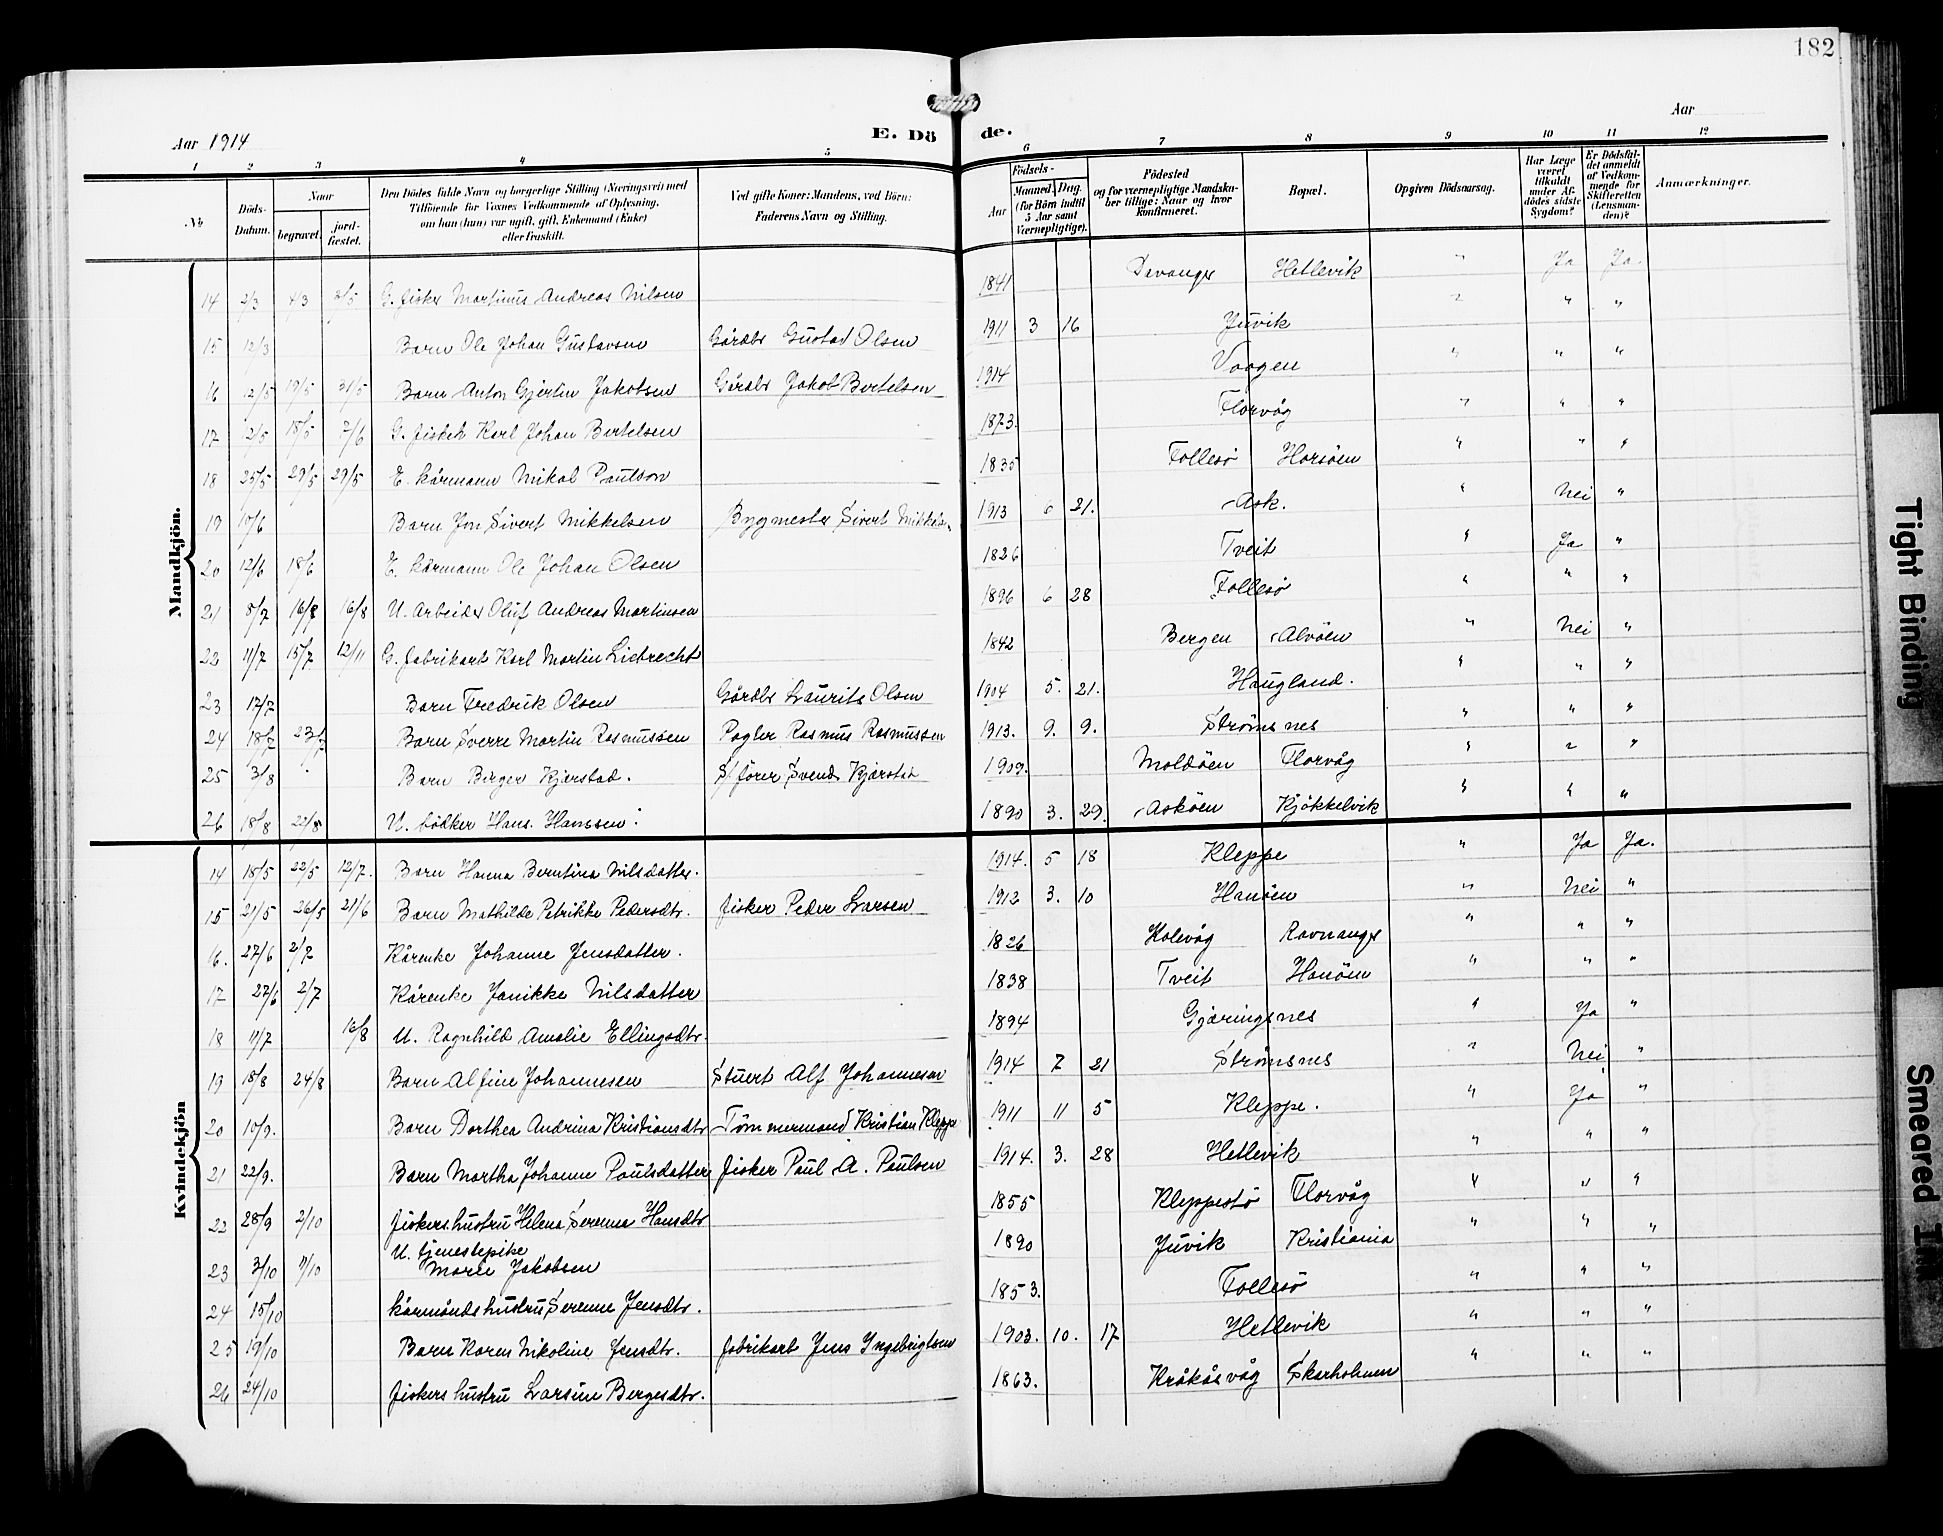 182
Aar 1914
E. Dö de.
Aar
1 2 3 4 5 6 7 8 9 10 11 12
No.
Döds-Datum.
Naar
begravet.
jord-fæstet.
Den Dödes fulde Navn og borgerlige Stilling (Næringsvei) med
Tilföiende for Voxnes Vedkommende af Oplysning,
om han (hun) var ugift, gift, Enkemand (Enke)
eller fraskilt.
Ved gifte Koner: Mandens, ved Börn:
Faderens Navn og Stilling.
Födsels-
Aar
Maaned. Dag.
(for Börn indtil
5 Aar samt
Værnepligtige).
Födested
og for værnepligtige Mandska-
ber tillige: Naar og hvor
konfirmeret.
Bopæl.
Opgiven Dödsaarsag.
Har Læge
været
tilkaldt
under Af-
dödes sidste
Sygdom?
Er Dödsfal-
det anmeldt
af Vedkom-
mende for
Skifteretten
(Lensman-
den)?
Anmærkninger.
Mandkjön.
14 2/3 4/3 2/5 G. fisker Martinus Andreas Nilsen 1841 Davanger Hetlevik " Ja Ja
15 12/3 Barn Ole Johan Gustavsen Gårdbr Gustav Olsen 1911 3 16 Juvik " " "
16 12/5 19/5 31/5 Barn Anton Gjertin Jakobsen Gårdbr Jakob Bertelsen 1914 Vaagen " " "
17 12/5 18/5 7/6 G. fisker Karl Johan Bertelsen 1873. Florvåg " " "
18 25/5 29/5 29/5 E. kårmann Mikal Paulson 1835 Follesö Horsöen " " "
19 10/6 Barn Jon Sivert Mikkelsen Bygmester Sivert Mikkelsen 1913 6 21. Ask. " Nei "
20 12/6 18/6 E. kårmann Ole Johan Olsen 1826 Tveit " Ja "
21 8/7 16/8 16/8 U. Arbeider Oluf Andreas Martinsen 1896 6 28 Follesö " " "
22 11/7 15/7 12/11 G. fabrikarb Karl Martin Liebrecht 1842 Bergen Alvöen " Nei "
23 17/7 Barn Fredrik Olsen Gårdbr Laurits Olsen 1904 5. 21. Haugland. " " "
24 18/7 23/7 Barn Sverre Martin Rasmussen Pagter Rasmus Rasmussen 1913. 9. 9. Strömsnes " " "
25 3/8 Barn Berger Kjerstad. S/förer Svend Kjærstad 1909. Moldöen Florvåg " " "
26 18/8 22/8 U. bödker Hans. Hanssen. 1890 3. 29. Asköen Kjökkelvik " " "
Kvindekjön
14 18/5 22/5 12/7. Barn Hanna Berntina Nilsdatter. 1914. 5 18 Kleppe " Ja Ja.
15 21/5 26/5 21/6 Barn Mathilde Petrikke Pedersdtr. fisker Peder Larsen 1912 3. 10 Hanöen " Nei "
16. 27/6 2/7 Kårenke Johanne Jensdatter. 1826 Kolevåg Ravnanger " " "
17 27/6 2/7 Kårenke Janikke Nilsdatter 1838 Tveit Hanöen " " "
18 11/7 16/8 U. Ragnhild Amalie Ellingsdtr. 1894 Gjæringsnes " Ja "
19 18/8 24/8 Barn Alfine Johannesen Stuert Alf Johannesen 1914 7 21 Strömsnes " Nei "
20 10/9. Barn Dorthea Andrina Kristiansdtr Tömmermand Kristian Kleppe 1911 11 5 Kleppe. " Ja "
21 22/9. Barn Martha Johanne Paulsdatter fisker Paul A. Paulsen 1914. 3. 28 Hetlevik " " "
22 28/9 2/10 fiskers hustru Helena Serenna Hansdtr 1855 Kleppestö Florvåg " " "
23 3/10 7/10 U. tjenestepike
Marie Jakobsen 1890 Juvik Kristiania " " "
24 15/10 kårmands hustru Serenne Jensdtr. 1853. Follesö " " "
25 19/10 Barn Karen Nikoline Jensdtr. fabrikarb Jens Ingebrigtsen 1903. 10. 17 Hetlevik " " "
26 24/10 fiskers hustru Larsine Bergesdtr. 1863. Kråkåsvåg Skarholmen " " "
Tight Binding
Smeared Ink